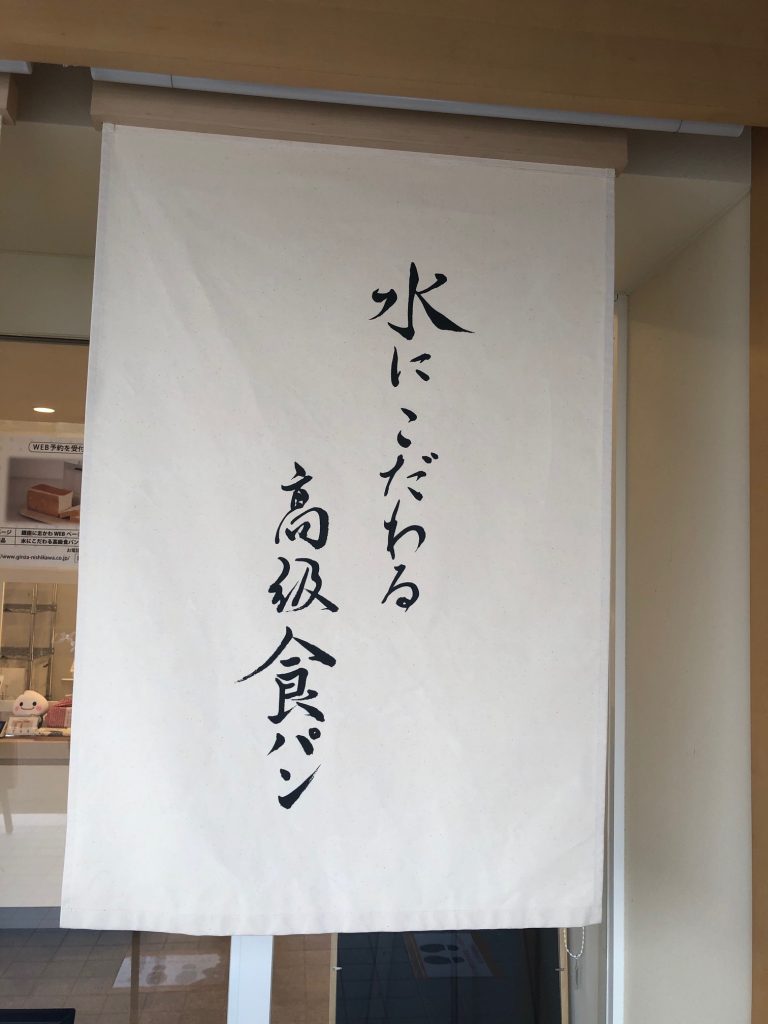 水にこだわる
高級食パン
WEB予約を受付
銀座に志かわWEBペー
水にこだわる高級食パン
www.ginza-nishikawa.co.jp/